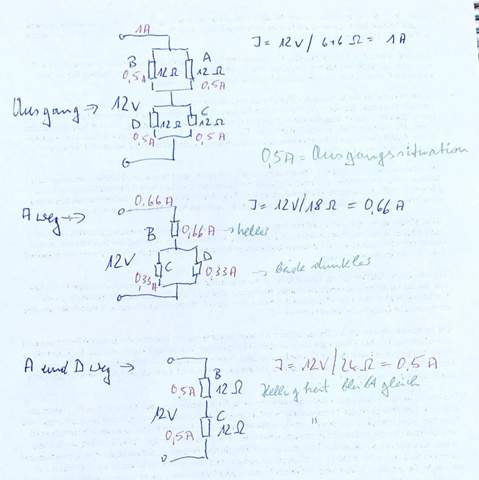 1A
I = 12V / 6+6 Ω = 1A
B A
12Ω 12Ω
0,5A 0,5A
Ausgang → 12V
D 12Ω C 12Ω
0,5A 0,5A
0,5A = Ausgangssituation
0,66A
I = 12V/18Ω = 0,66A
A weg →
B 0,66A → heller
12V C D
0,33A 0,33A → beide dunkler
A und D weg →
I = 12V/24Ω = 0,5A
B
0,5A 12Ω
Helligkeit bleibt gleich
12V C
0,5A 12Ω "